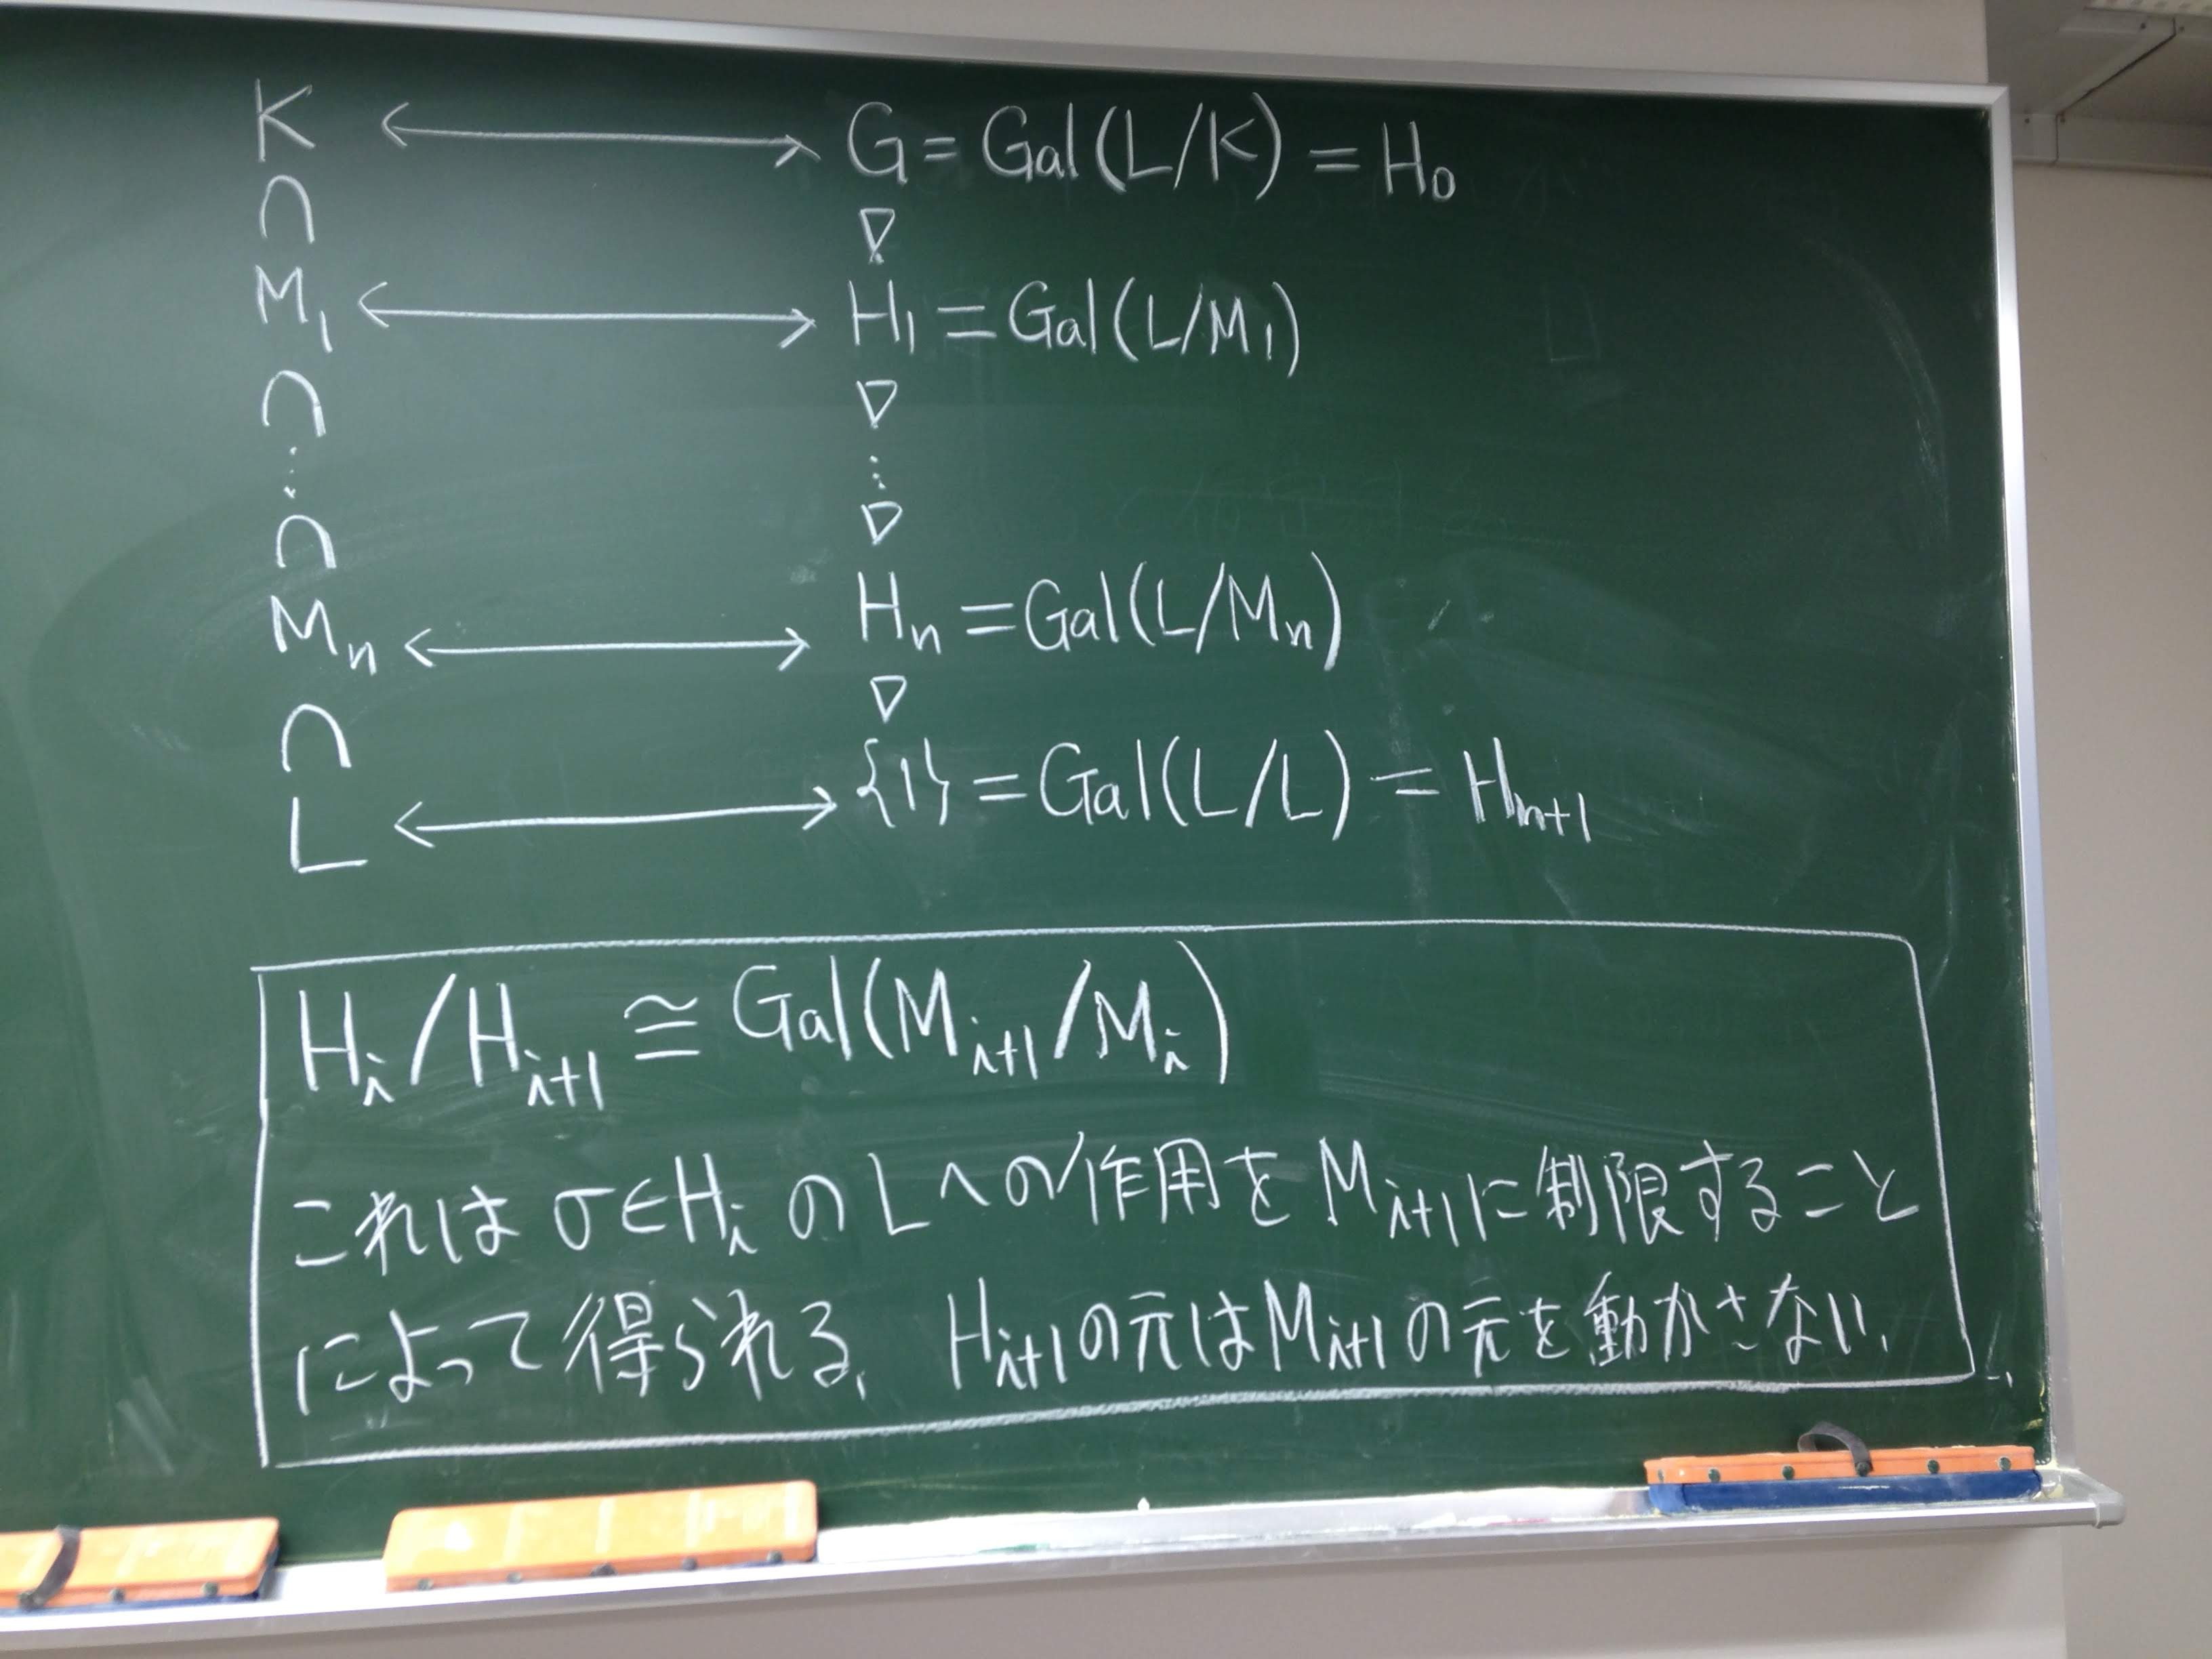 K ⟷ G = Gal(L/K) = H₀
∩ ▽
M₁ ⟷ H₁ = Gal(L/M₁)
∩ ▽
⋮ ⋮
∩ ▽
Mₙ ⟷ Hₙ = Gal(L/Mₙ)
∩ ▽
L ⟷ {1} = Gal(L/L) = Hₙ₊₁
Hᵢ/Hᵢ₊₁ ≅ Gal(Mᵢ₊₁/Mᵢ)
これは σ∈Hᵢ の Lへの作用を Mᵢ₊₁に制限すること
によって得られる. Hᵢ₊₁の元はMᵢ₊₁の元を動かさない.